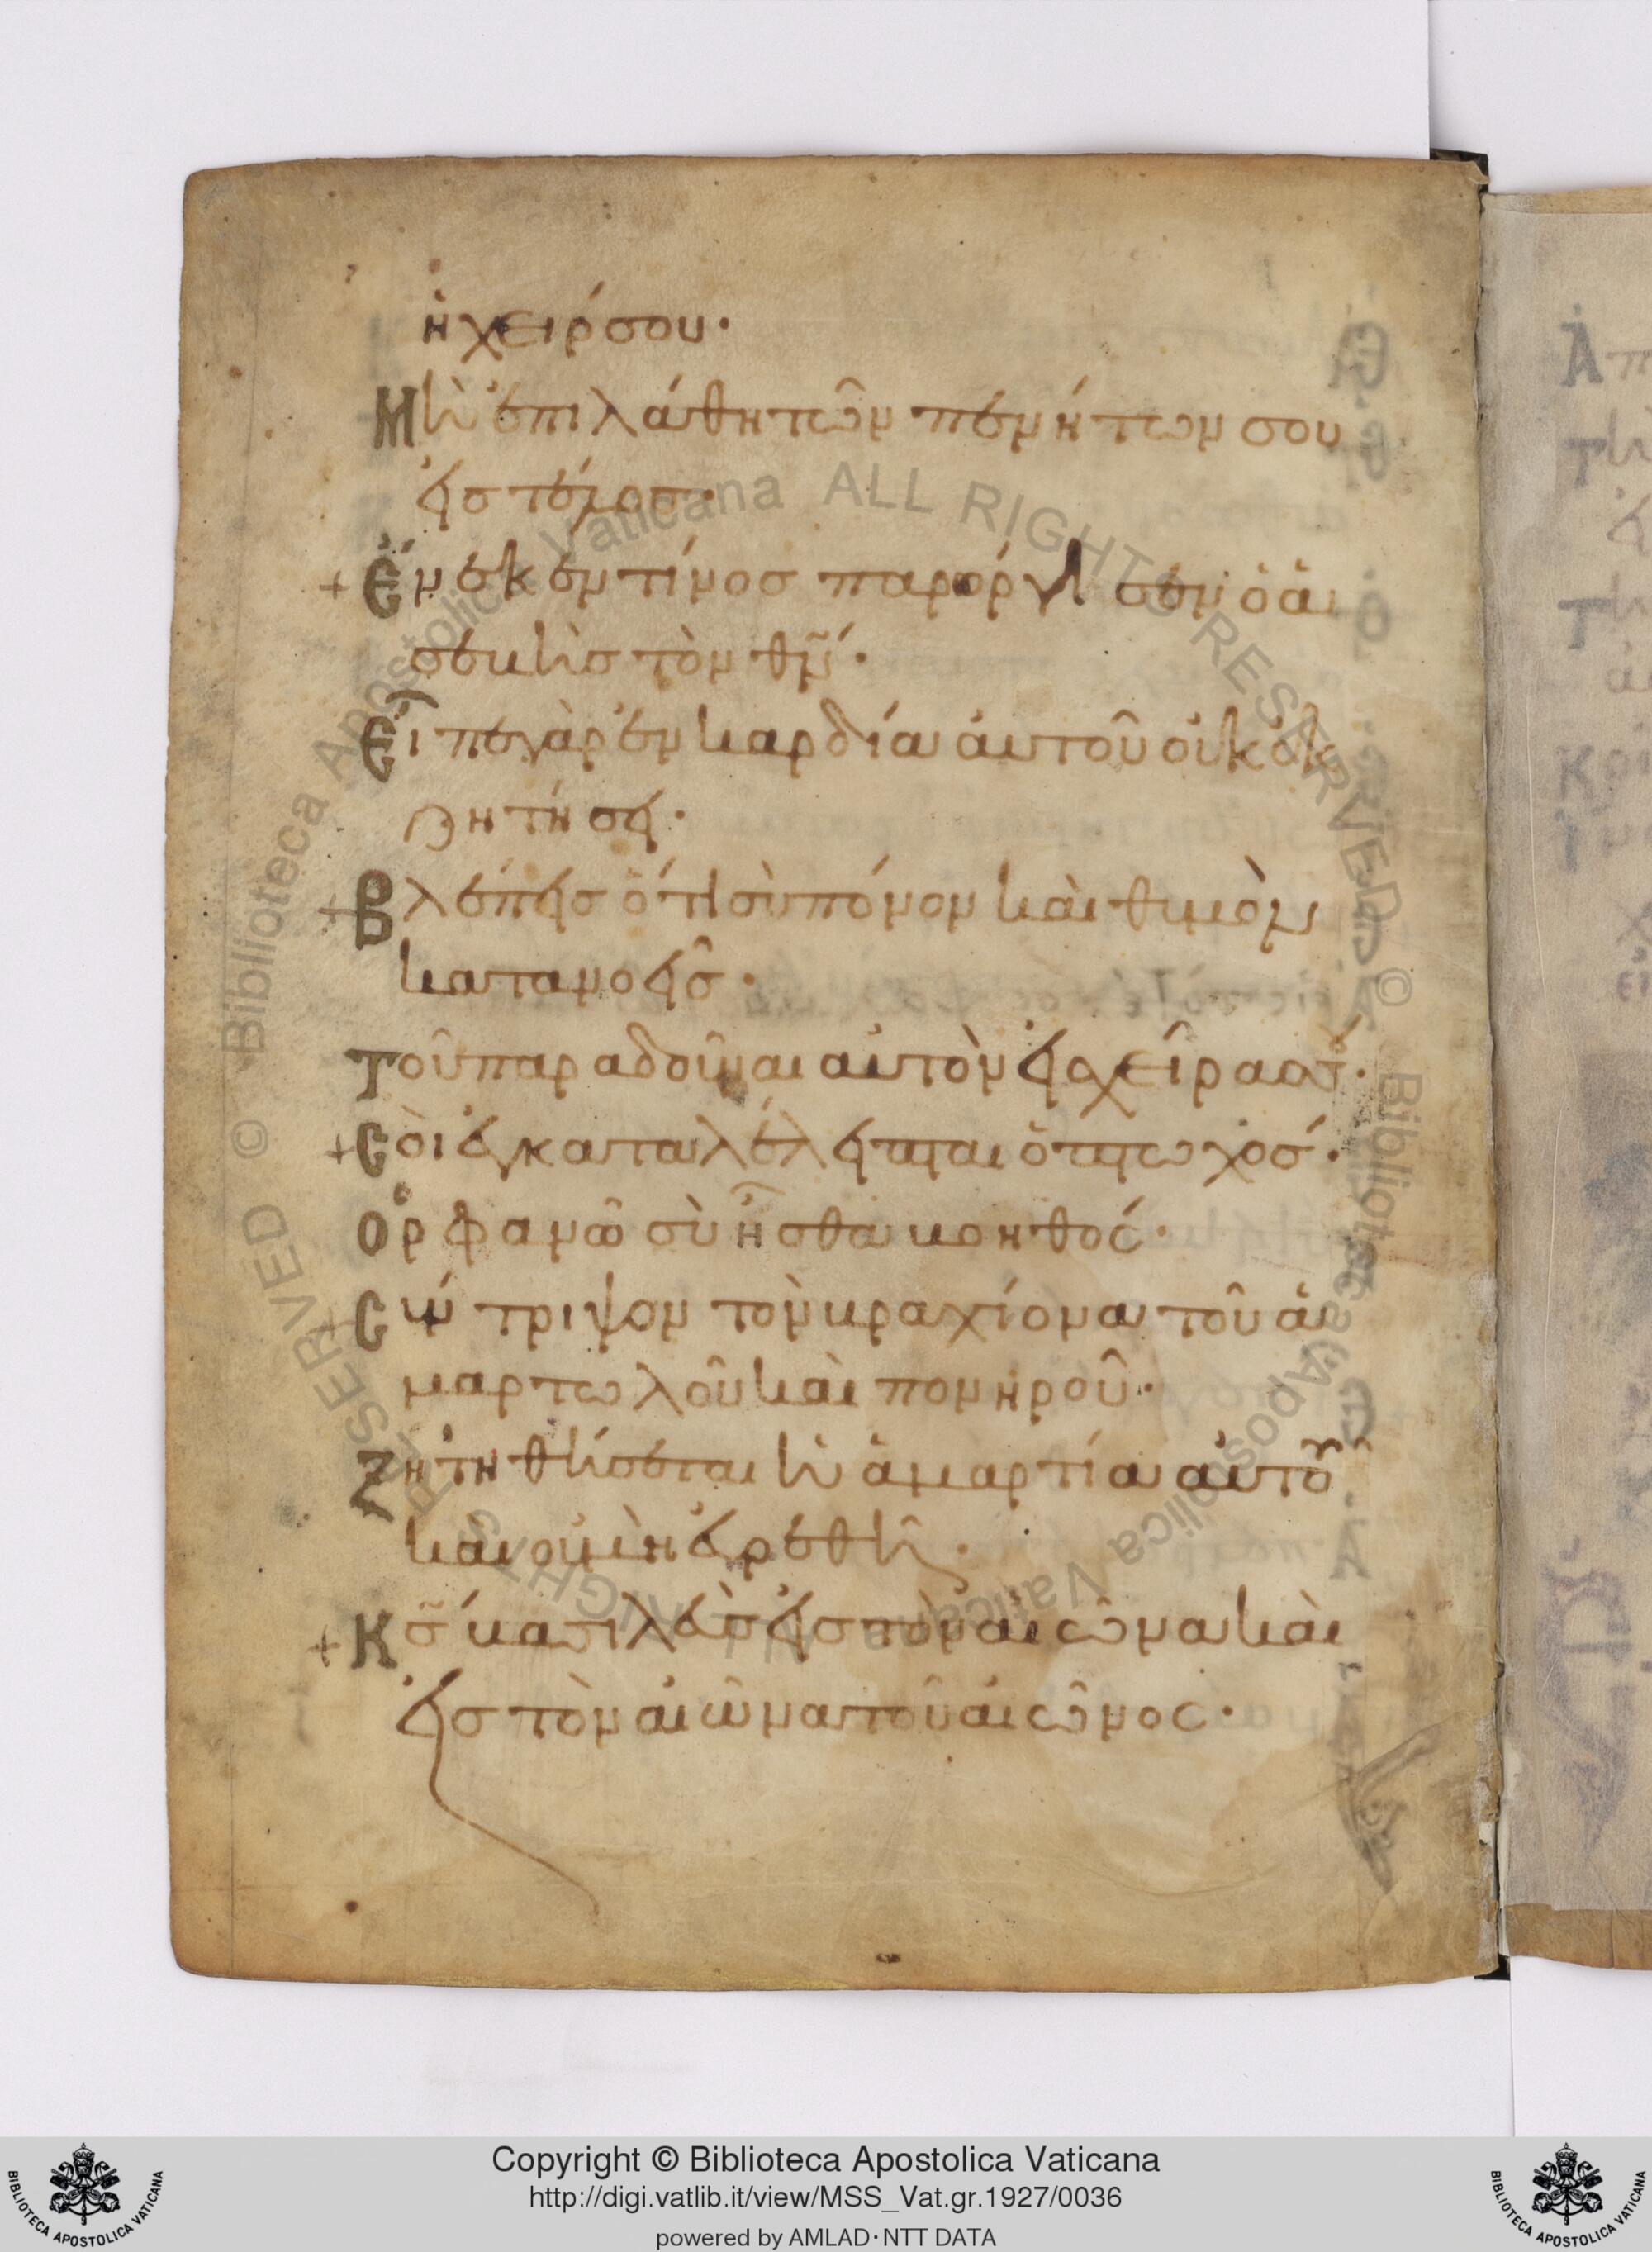 ἡ χείρ σου·
Μὴ ἐπιλάθη τῶν πενήτων σου
εἰς τέλος·
+ Ἕνεκεν τίνος παρόργισεν ὁ ἀ
σεβὴς τὸν θν̅·
Εἶπε γὰρ ἐν καρδία αὐτοῦ οὐκ ἐκ
ζητήσει·
+ Βλέπεις ὅτι σὺ πόνον καὶ θυμὸν
κατανοεῖς·
Τοῦ παραδοῦναι αὐτὸν εἰς χεῖρας σου·
+ Σοὶ ἐγκαταλέλειπται ὁ πτωχός·
Ὀρφανῶ σὺ ἦσθα βοηθός·
Σύντριψον τὸν βραχίονα τοῦ ἁ
μαρτωλοῦ καὶ πονηροῦ·
Ζητηθήσεται ἡ ἁμαρτία αὐτοῦ
καὶ οὐ μὴ εὑρεθῆ·
+ Κς̅ βασιλεὺς εἰς τὸν αἰῶνα καὶ
εἰς τὸν αἰῶνα τοῦ αἰῶνος·
© Biblioteca Apostolica Vaticana ALL RIGHTS RESERVED
© Biblioteca Apostolica Vaticana ALL RIGHTS RESERVED
Copyright © Biblioteca Apostolica Vaticana
http://digi.vatlib.it/view/MSS_Vat.gr.1927/0036
powered by AMLAD·NTT DATA
BIBLIOTECA APOSTOLICA VATICANA
BIBLIOTECA APOSTOLICA VATICANA